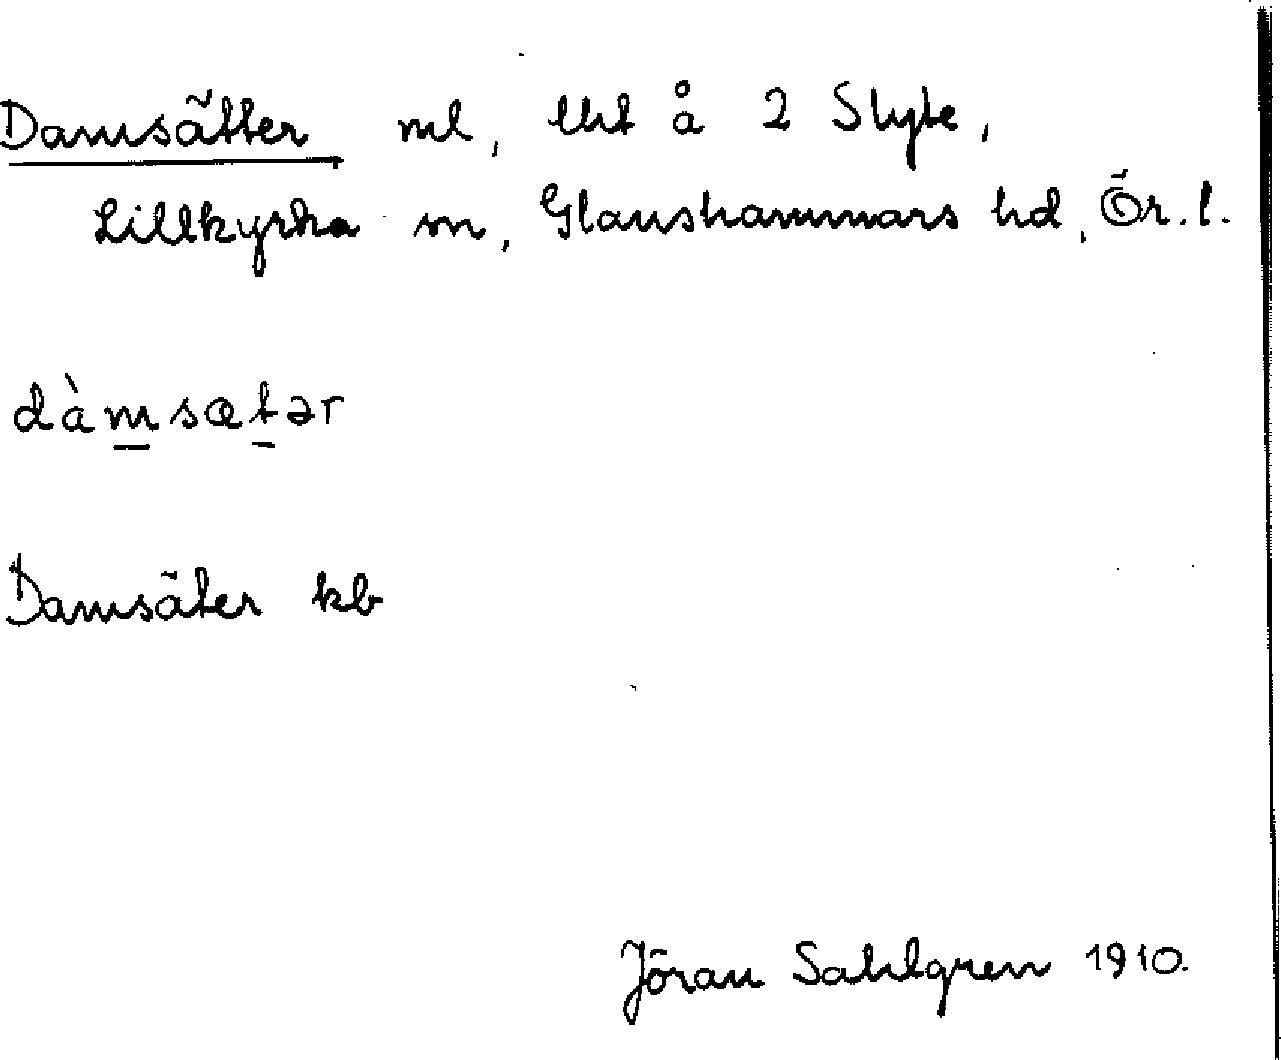 Damsätter ml, lht å 2 Slyte,
Lillkyrka sn, Glanshammars hd, Ör. l.
dàmsætər
Damsäter kb
Jöran Sahlgren 1910.